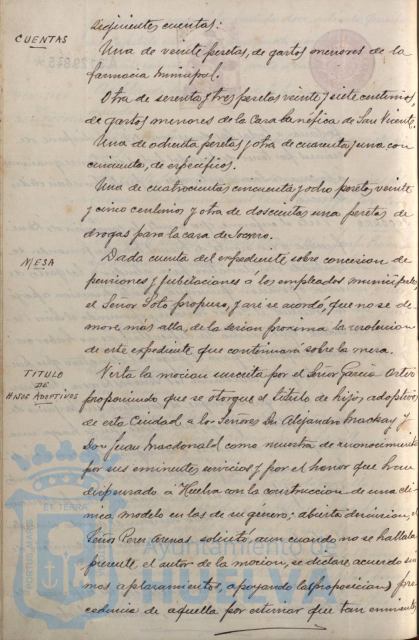 siguientes cuentas:
CUENTAS
Una de veinte pesetas, de gastos menores de la
farmacia municipal.
Otra de setenta y tres pesetas veinte y siete centimos
de gastos menores de la Casa benéfica de San Vicente.
Una de ochenta pesetas y otra de cuarenta y una con
cincuenta, de específicos.
Una de cuatrocientas cincuenta y ocho pesetas, veinte
y cinco centimos y otra de doscientas una pesetas de
drogas para la casa de Socorro.
MESA
Dada cuenta del expediente sobre concesion de
pensiones y jubilaciones á los empleados municipales
el Señor Soló propuso, y asi se acordó, que no se de-
more más allá, de la sesion proxima la resolucion
de este expediente que continuará sobre la mesa.
TITULO
DE
HIJOS ADOPTIVOS
Vista la mocion suscrita por el Señor Garcia
proponiendo que se otorgue el título de hijos adoptivos
de esta Ciudad a los Señores Dn Alejandro Mackay y
Don Juan Macdonald como muestra de reconocimiento
por sus eminentes servicios y por el honor que han
dispensado a Huelva con la construccion de una clí-
nica modelo en las de su género; abierta discusion, el
Señor Perez Arenas solicitó, aun cuando no se hallaba
presente el autor de la mocion, se declare, acuerdo sin
mas aplazamientos, apoyando la proposicion)
de aquella por estimar que tan eminentes
PORTUS MARIS
ET TERRÆ
Ayuntamiento de
HUELVA